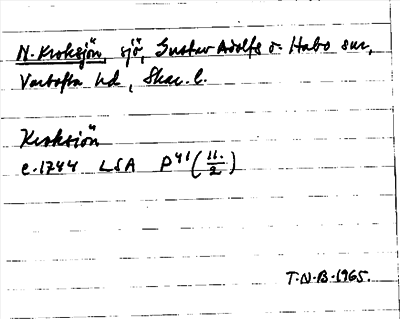 N. Kroksjön, sjö, Gustav Adolfs o. Habo snr,
Vartofta hd, Skar. l.
Kroksiön
c. 1744 LSA P41 (11./2)
T.N.B. 1965.